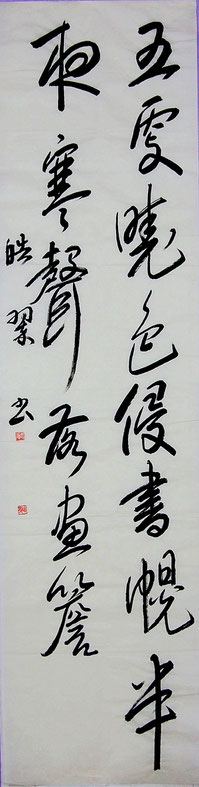 五更曉色侵書幌半
夜寒聲落畫簷
皓翠书